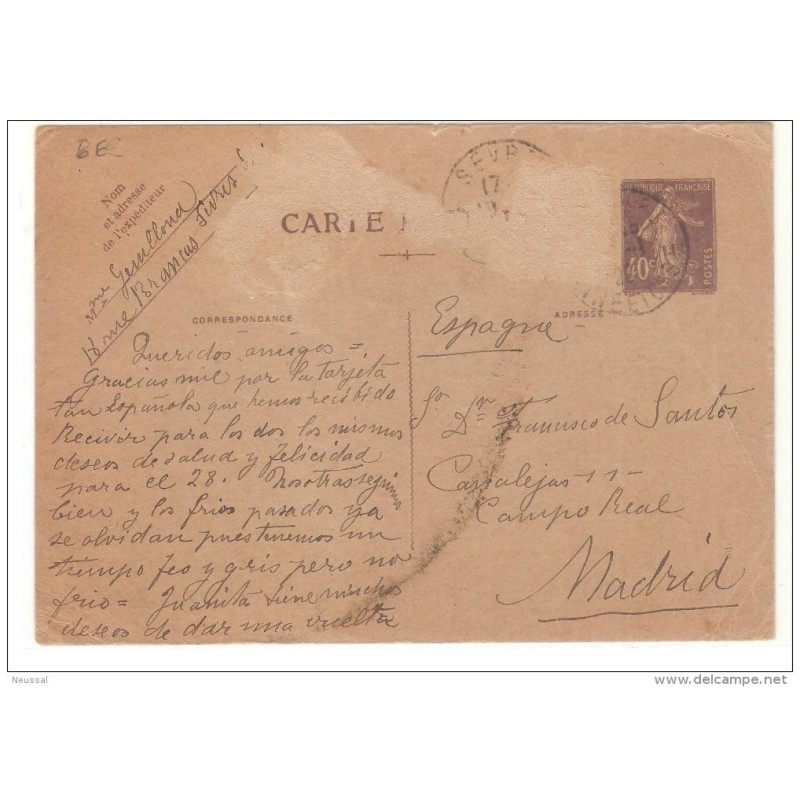 6 €
Nom
et adresse
de l'expéditeur
Mme
rue Brancas
SEVR
17
CARTE
REPUBLIQUE FRANÇAISE
40c
POSTES
CORRESPONDANCE
ADRESSE
Queridos amigos =
Gracias mil por la tarjeta
tan Española que hemos recibido
Recivir para los dos los mismos
deseos de salud y felicidad
para el 28. Nosotras seguimos
bien y los frios pasados ya
se olvidan pues tenemos un
tiempo feo y gris pero no
frio = Juanita tiene muchos
deseos de dar una vuelta
Espagne
Dr Francisco de Santos
Canalejas 11 -
Campo Real
Madrid
Neussal
delcampe.net